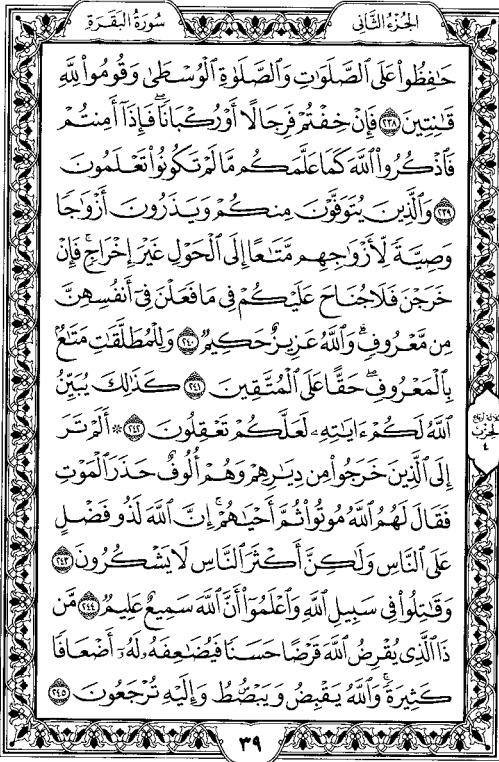 سُورَةُ البَقَرَةِ
الجُزْءُ الثَّانِي
حَٰفِظُواْ عَلَى ٱلصَّلَوَٰتِ وَٱلصَّلَوٰةِ ٱلۡوُسۡطَىٰ وَقُومُواْ لِلَّهِ
قَٰنِتِينَ ٢٣٨ فَإِنۡ خِفۡتُمۡ فَرِجَالًا أَوۡ رُكۡبَانٗاۖ فَإِذَآ أَمِنتُمۡ
فَٱذۡكُرُواْ ٱللَّهَ كَمَا عَلَّمَكُم مَّا لَمۡ تَكُونُواْ تَعۡلَمُونَ
٢٣٩ وَٱلَّذِينَ يُتَوَفَّوۡنَ مِنكُمۡ وَيَذَرُونَ أَزۡوَٰجٗا
وَصِيَّةٗ لِّأَزۡوَٰجِهِم مَّتَٰعًا إِلَى ٱلۡحَوۡلِ غَيۡرَ إِخۡرَاجٖۚ فَإِنۡ
خَرَجۡنَ فَلَا جُنَاحَ عَلَيۡكُمۡ فِي مَا فَعَلۡنَ فِيٓ أَنفُسِهِنَّ
مِن مَّعۡرُوفٖۗ وَٱللَّهُ عَزِيزٌ حَكِيمٞ ٢٤٠ وَلِلۡمُطَلَّقَٰتِ مَتَٰعُۢ
بِٱلۡمَعۡرُوفِۖ حَقًّا عَلَى ٱلۡمُتَّقِينَ ٢٤١ كَذَٰلِكَ يُبَيِّنُ
ٱللَّهُ لَكُمۡ ءَايَٰتِهِۦ لَعَلَّكُمۡ تَعۡقِلُونَ ٢٤٢ ۞ أَلَمۡ تَرَ
إِلَى ٱلَّذِينَ خَرَجُواْ مِن دِيَٰرِهِمۡ وَهُمۡ أُلُوفٌ حَذَرَ ٱلۡمَوۡتِ
فَقَالَ لَهُمُ ٱللَّهُ مُوتُواْ ثُمَّ أَحۡيَٰهُمۡۚ إِنَّ ٱللَّهَ لَذُو فَضۡلٍ
عَلَى ٱلنَّاسِ وَلَٰكِنَّ أَكۡثَرَ ٱلنَّاسِ لَا يَشۡكُرُونَ ٢٤٣
وَقَٰتِلُواْ فِي سَبِيلِ ٱللَّهِ وَٱعۡلَمُوٓاْ أَنَّ ٱللَّهَ سَمِيعٌ عَلِيمٞ ٢٤٤ مَّن
ذَا ٱلَّذِي يُقۡرِضُ ٱللَّهَ قَرۡضًا حَسَنٗا فَيُضَٰعِفَهُۥ لَهُۥٓ أَضۡعَافٗا
كَثِيرَةٗۚ وَٱللَّهُ يَقۡبِضُ وَيَبۡصُۜطُ وَإِلَيۡهِ تُرۡجَعُونَ ٢٤٥
الحزب
٤
٣٩